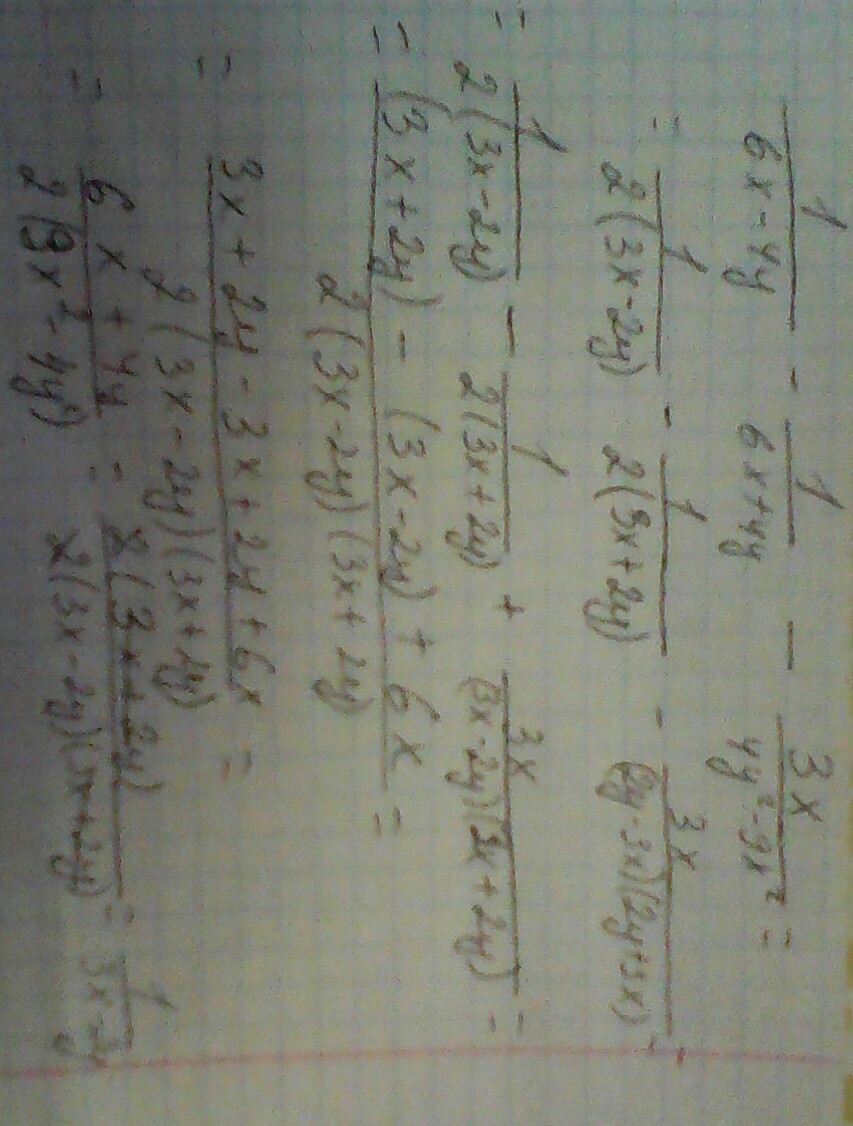 1/(6x-4y) - 1/(6x+4y) - 3x/(4y²-9x²) =
= 1/(2(3x-2y)) - 1/(2(3x+2y)) - 3x/((2y-3x)(2y+3x)) =
= 1/(2(3x-2y)) - 1/(2(3x+2y)) + 3x/((3x-2y)(3x+2y)) =
= ((3x+2y) - (3x-2y) + 6x)/(2(3x-2y)(3x+2y)) =
= (3x+2y-3x+2y+6x)/(2(3x-2y)(3x+2y)) =
= (6x+4y)/(2(9x²-4y²)) = (2(3x+2y))/(2(3x-2y)(3x+2y)) = 1/(3x-2y)